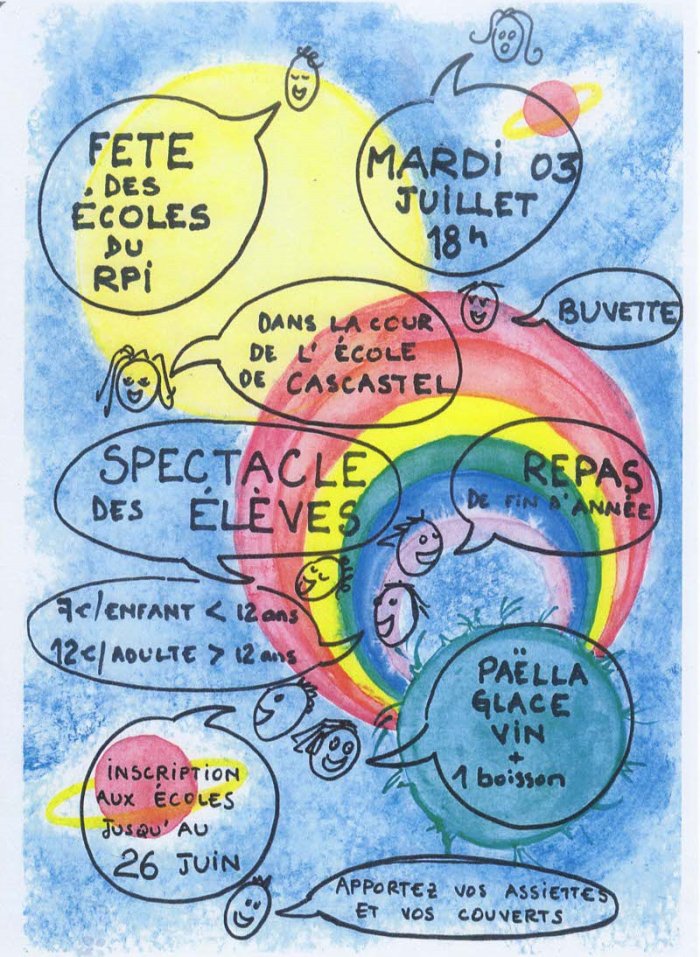 FETE
DES
ÉCOLES
DU
RPI
MARDI 03
JUILLET
18h
BUVETTE
DANS LA COUR
DE L' ÉCOLE
DE CASCASTEL
SPECTACLE
DES ÉLÈVES
REPAS
DE FIN D'ANNÉE
7€/ENFANT < 12 ans
12€/ADULTE > 12 ans
PAËLLA
GLACE
VIN
+
1 boisson
INSCRIPTION
AUX ÉCOLES
JUSQU'AU
26 JUIN
APPORTEZ VOS ASSIETTES
ET VOS COUVERTS